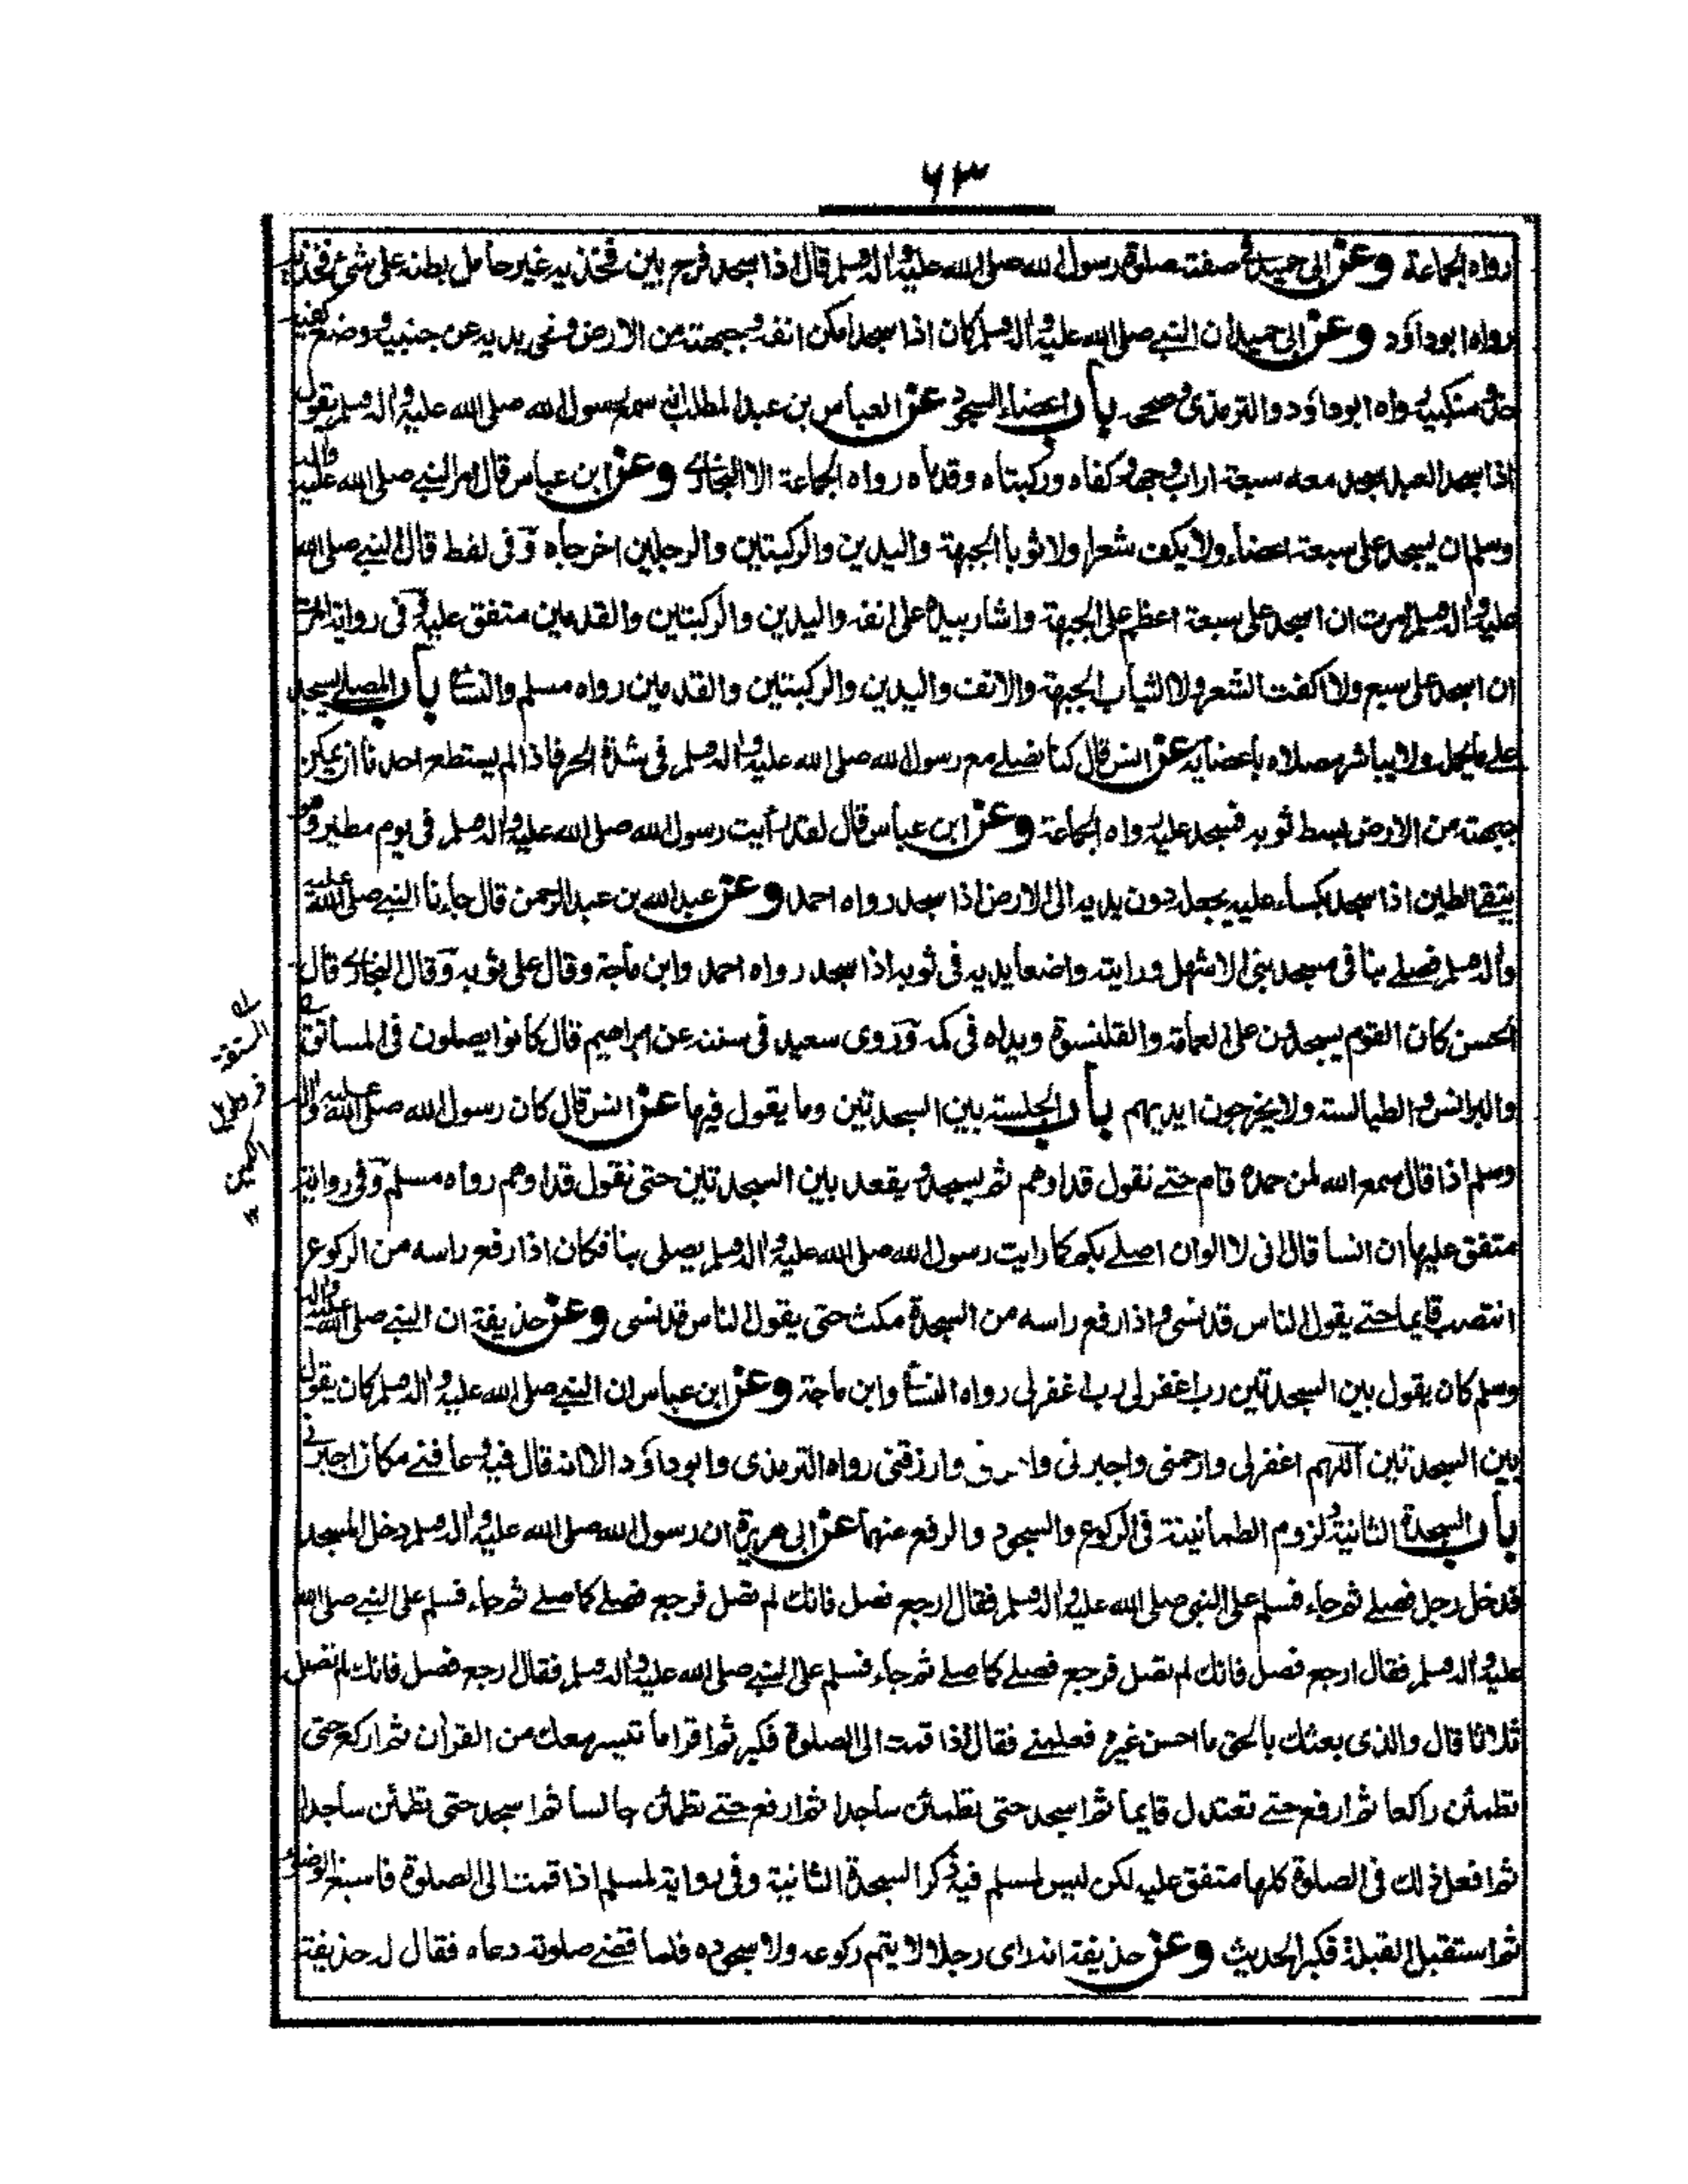 ٦٣
رواه الجماعة وعن ابى حميد فى صفة صلوة رسول الله صلى الله عليه واله وسلم قال اذا سجد فرج بين فخذيه غير حامل بطنه على شئ من فخذيه
رواه ابو داؤد وعن ابى حميد ان النبي صلى الله عليه واله وسلم كان اذا سجد امكن انفه وجبهته من الارض ونحى يديه عن جنبيه ووضع كفيه
حذو منكبيه رواه ابو داؤد والترمذى وصححه باب اعضاء السجود عن العباس بن عبد المطلب انه سمع رسول الله صلى الله عليه واله وسلم يقول
اذا سجد العبد سجد معه سبعة اراب وجهه وكفاه وركبتاه وقدماه رواه الجماعة الا البخارى وعن ابن عباس قال امر النبي صلى الله عليه واله
وسلم ان يسجد على سبعة اعضاء ولا يكف شعرا ولا ثوبا الجبهة واليدين والركبتين والرجلين اخرجاه وفى لفظ قال النبي صلى الله
عليه واله وسلم امرت ان اسجد على سبعة اعظم على الجبهة واشار بيده على انفه واليدين والركبتين والقدمين متفق عليه وفى رواية امرت
ان اسجد على سبع ولا اكفت الشعر ولا الثياب الجبهة والانف واليدين والركبتين والقدمين رواه مسلم والنسائى باب المصلى يسجد
على ما يحمله ولا يباشر مصلاه باعضائه عن انس قال كنا نصلے مع رسول الله صلى الله عليه واله وسلم فى شدة الحر فاذا لم يستطع احدنا ان يمكن
جبهته من الارض بسط ثوبه فسجد عليه رواه الجماعة وعن ابن عباس قال لقد رأيت رسول الله صلى الله عليه واله وسلم فى يوم مطير وهو
يتقے الطين اذا سجد بكساء عليه يجعله دون يديه الى الارض اذا سجد رواه احمد وعن عبد الله بن عبد الرحمن قال جاءنا النبي صلى الله عليه
واله وسلم فصلے بنا فى مسجد بنى الاشهل ورايته واضعا يديه فى ثوبه اذا سجد رواه احمد وابن ماجة وقال على ثوبه وقال البخارى قال
الحسن كان القوم يسجدون على العمامة والقلنسوة ويداه فى كمه وروى سعيد فى سننه عن ابراهيم قال كانوا يصلون فى المساتق
والبرانس والطيالسة ولا يخرجون ايديهم باب الجلسة بين السجدتين وما يقول فيها عن انس قال كان رسول الله صلى الله عليه واله
وسلم اذا قال سمع الله لمن حمده قام حتے نقول قد اوهم ثم يسجد ويقعد بين السجدتين حتى نقول قد اوهم رواه مسلم وفى رواية
متفق عليها ان انسا قال انى لا الو ان اصلے بكم كما رايت رسول الله صلى الله عليه واله وسلم يصلى بنا فكان اذا رفع راسه من الركوع
انتصب قايما حتے يقول الناس قد نسى واذا رفع راسه من السجدة مكث حتى يقول الناس قد نسى وعن حذيفة ان النبي صلى الله عليه واله
وسلم كان يقول بين السجدتين رب اغفر لى رب اغفر لى رواه النسائى وابن ماجة وعن ابن عباس ان النبي صلى الله عليه واله وسلم كان يقول
بين السجدتين اللهم اغفر لى وارحمنى واجبرنى وارزقنى رواه الترمذى وابو داؤد الا انه قال فيه وعافنے مكان اجبرنے
باب السجدة الثانية ولزوم الطمأنينة فى الركوع والسجود والرفع عنهما عن ابى هريرة ان رسول الله صلى الله عليه واله وسلم دخل المسجد
فدخل رجل فصلے ثم جاء فسلم على النبى صلى الله عليه واله وسلم فقال ارجع فصل فانك لم تصل فرجع فصلے كما صلے ثم جاء فسلم على النبي صلى الله
عليه واله وسلم فقال ارجع فصل فانك لم تصل فرجع فصلے كما صلے ثم جاء فسلم على النبي صلى الله عليه واله وسلم فقال ارجع فصل فانك لم تصل
ثلاثا قال والذى بعثك بالحق ما احسن غيره فعلمنے فقال اذا قمت الى الصلوة فكبر ثم اقرا ما تيسر معك من القرآن ثم اركع حتى
تطمئن راكعا ثم ارفع حتے تعتدل قايما ثم اسجد حتى تطمئن ساجدا ثم ارفع حتے تطمئن جالسا ثم اسجد حتى تطمئن ساجدا
ثم افعل ذلك فى الصلوة كلها متفق عليه لكن ليس لمسلم فيه ذكر السجدة الثانية وفى رواية لمسلم اذا قمت الى الصلوة فاسبغ الوضوء
ثم استقبل القبلة فكبر الحديث وعن حذيفة انه راى رجلا لا يتم ركوعه ولا سجوده فلما قضے صلوته دعاه فقال له حذيفة
المستقة
فرو طويل
الكمين